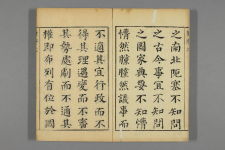 之南北阨塞不知問
之古今事宜不知問
之國家典要不知懵
懵然矇矇然議事而
不適其宜行政而不
得其理遇變而不審
其勢處劇而不適其
權即布列有位於國